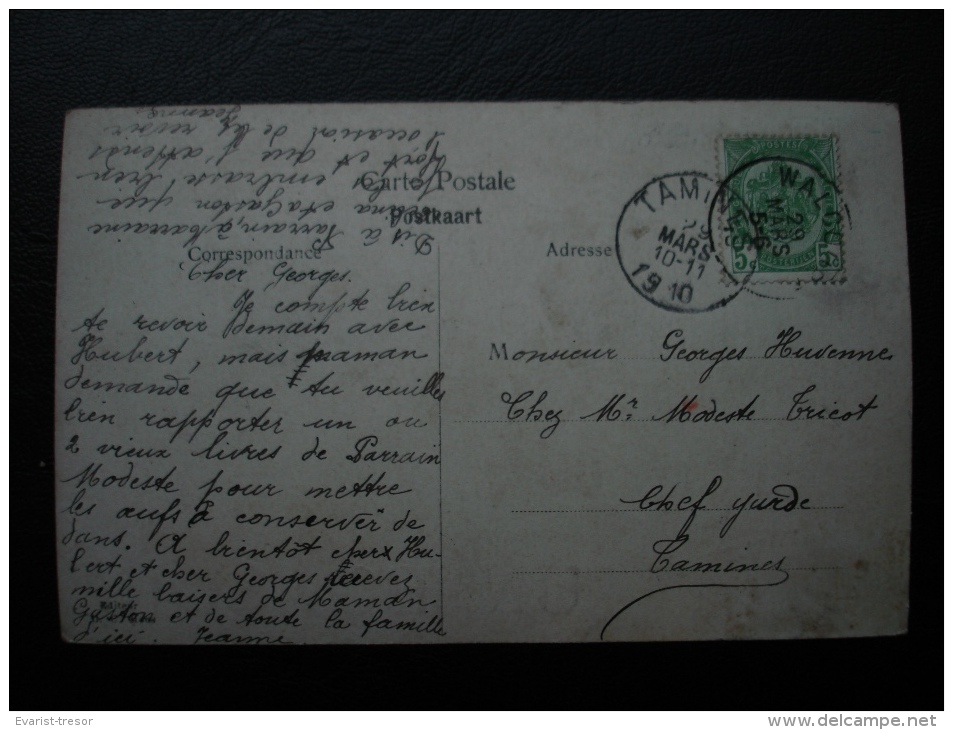 Carte Postale
Postkaart
Correspondance
Adresse
Cher Georges.
Je compte bien
te revoir demain avec
Hubert, mais maman
demande que tu veuilles
bien rapporter un ou
2 vieux livres de Parrain
Modeste pour mettre
les œufs à conserver de
dans. A bientôt cher Hu-
bert et cher Georges recevez
mille baisers de Maman
Gaston et de toute la famille
d'ici. Jeanne
Dis à Parrain, à Marraine
et à Gaston que
embrasse bien
fort et que j'attends
l'occasion de les revoir
Jeanne
Monsieur Georges Huvenne
Chez Mr Modeste Tricot
Chef garde
Tamines
TAMINES
29
MARS
10-11
1910
29
MARS
5-6
POSTES
5c 5c
POSTERIJEN
Evarist-tresor
www.delcampe.net